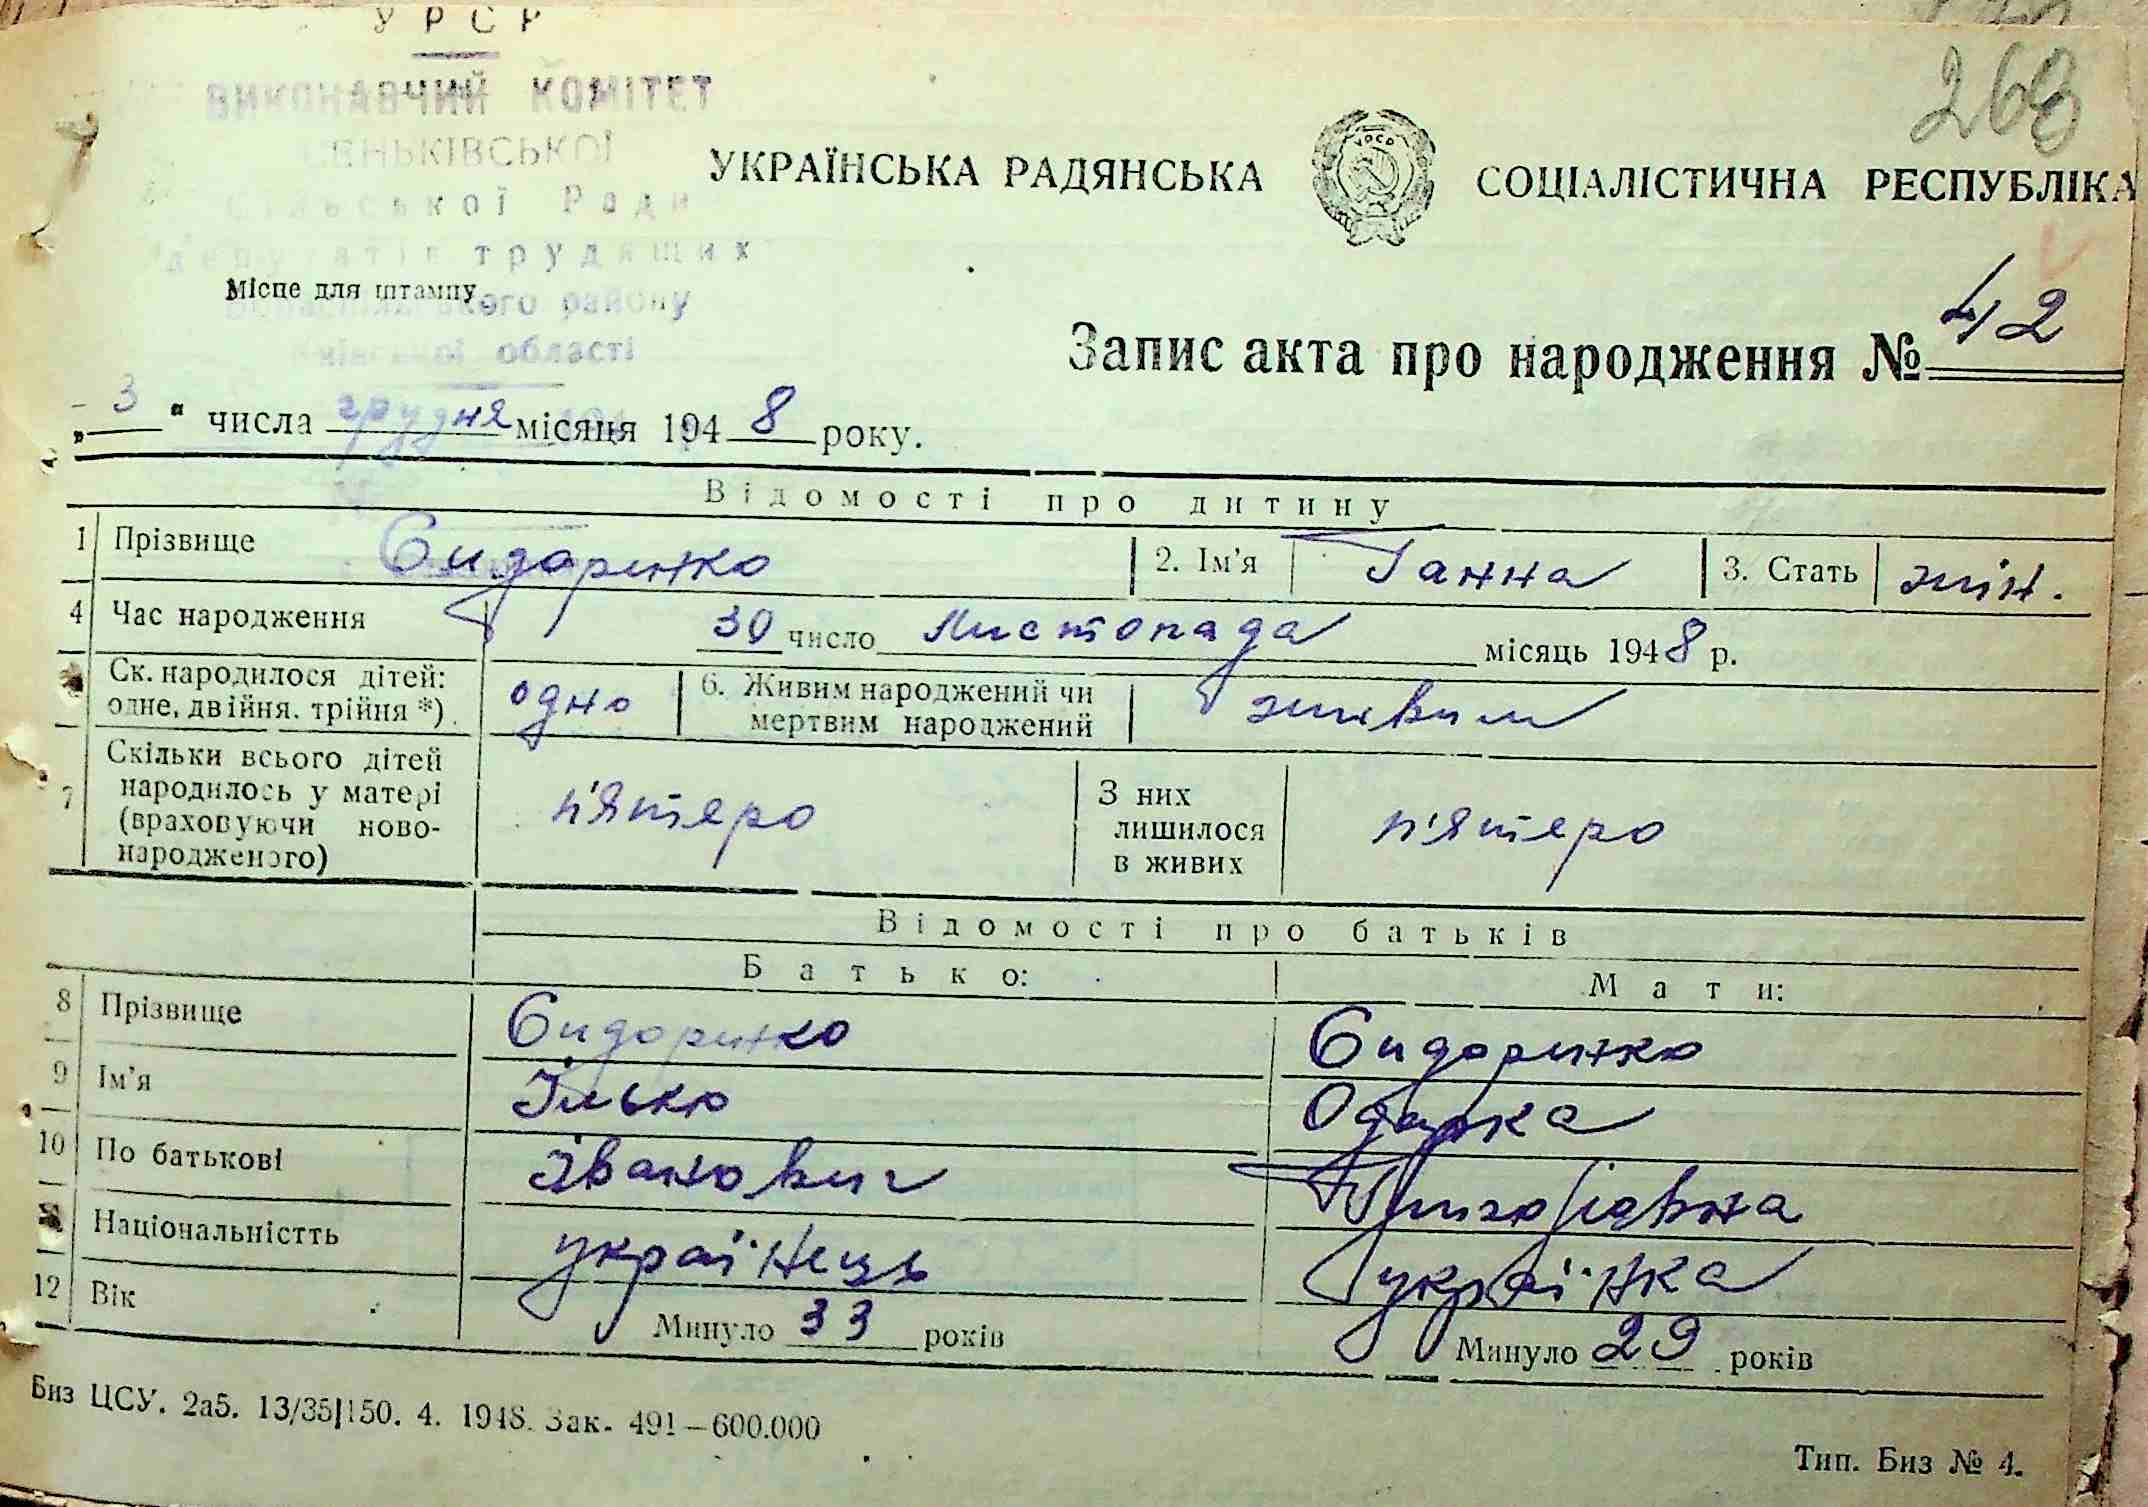 УРСР
ВИКОНАВЧИЙ КОМІТЕТ
СЕНЬКІВСЬКОЇ
Сільської Ради
депутатів трудящих
Бориспільського району
Київської області
268
УКРАЇНСЬКА РАДЯНСЬКА СОЦІАЛІСТИЧНА РЕСПУБЛІКА
Місце для штампу
Запис акта про народження № 42
„ 3 “ числа грудня місяця 1948 року.
Відомості про дитину
1 Прізвище Сидоренко 2. Ім'я Ганна 3. Стать жін.
4 Час народження 30 число Листопада місяць 1948 р.
Ск. народилося дітей: одне, двійня, трійня *) одно 6. Живим народжений чи мертвим народжений живим
7 Скільки всього дітей народилось у матері (враховуючи ново-народженого) п'ятеро З них лишилося в живих п'ятеро
Відомості про батьків
Батько: Мати:
8 Прізвище Сидоренко Сидоренко
9 Ім'я Ілько Одарка
10 По батькові Іванович Григорівна
Національністть українець українка
12 Вік Минуло 33 років Минуло 29 років
Биз ЦСУ. 2а5. 13/35|150. 4. 1948. Зак. 491—600.000
Тип. Биз № 4.